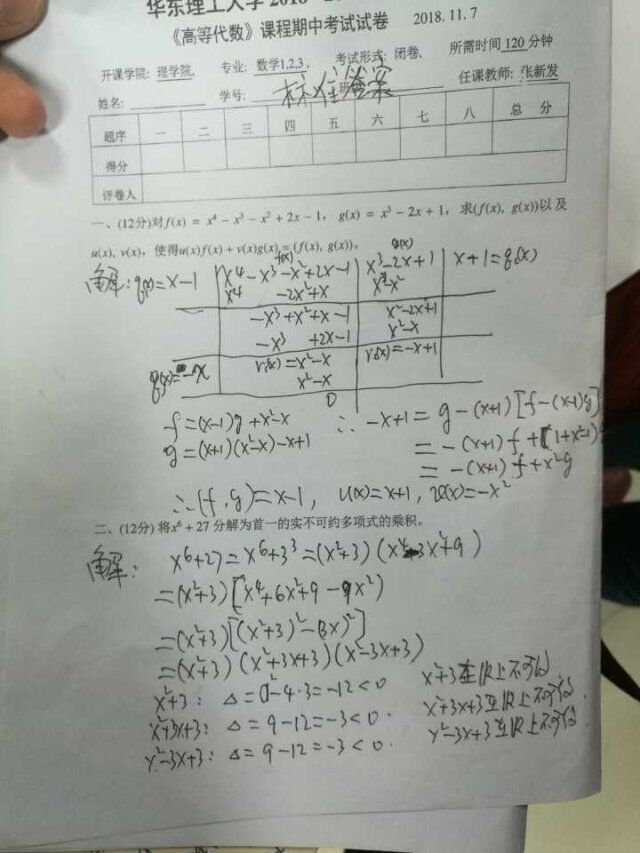 华东理工大学 2018
《高等代数》课程期中考试试卷 2018.11.7
开课学院: 理学院, 专业: 数学1,2,3, 考试形式: 闭卷, 所需时间 120 分钟
姓名: 学号: 标准答案 班 任课教师: 张新发
题序 一 二 三 四 五 六 七 八 总 分
得分
评卷人
一、(12分)对f(x) = x⁴ − x³ − x² + 2x − 1, g(x) = x³ − 2x + 1, 求(f(x), g(x))以及
u(x), v(x), 使得u(x)f(x) + v(x)g(x) = (f(x), g(x))。
f(x) g(x)
解: q₁(x)=x−1 x⁴−x³−x²+2x−1 x³−2x+1 x+1=q₂(x)
x⁴ −2x²+x x³−x²
−x³+x²+x−1 x²−2x+1
−x³ +2x−1 x²−x
q₃(x)=−x r₁(x)=x²−x r₂(x)=−x+1
x²−x
0
f=(x−1)g+x²−x ∴ −x+1 = g−(x+1)[f−(x−1)g]
g=(x+1)(x²−x)−x+1 = −(x+1)f+(1+x²−1)g
= −(x+1)f+x²g
∴(f,g)=x−1, u(x)=x+1, v(x)=−x²
二、(12分) 将x⁶ + 27 分解为首一的实不可约多项式的乘积。
解: x⁶+27=x⁶+3³=(x²+3)(x⁴−3x²+9)
=(x²+3)[x⁴+6x²+9−9x²]
=(x²+3)[(x²+3)²−(3x)²]
=(x²+3)(x²+3x+3)(x²−3x+3)
x²+3: Δ=0²−4·3=−12<0 x²+3在ℝ上不可约
x²+3x+3: Δ=9−12=−3<0. x²+3x+3在ℝ上不可约.
x²−3x+3: Δ=9−12=−3<0. x²−3x+3在ℝ上不可约.